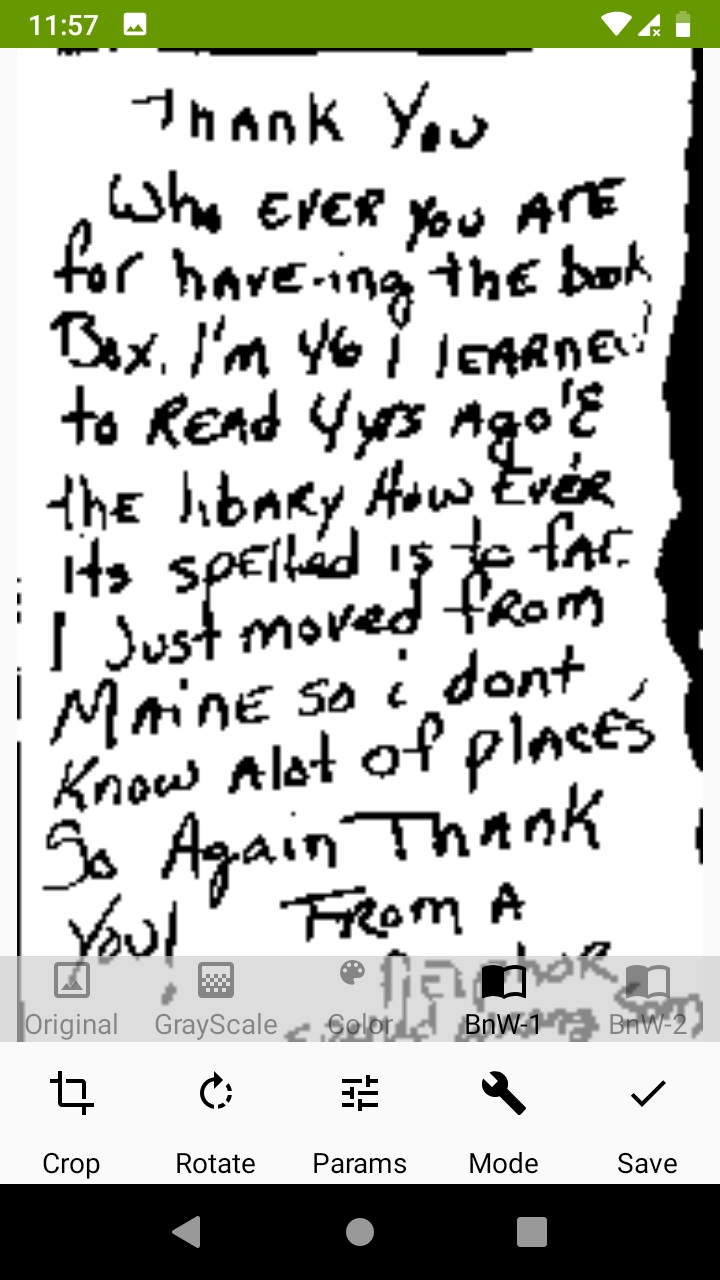 11:57
Thank You
Who EVER you ARE
for have-ing the book
Box. I'm 46 I lEARNEd
to READ 4 yrs Ago'E
the libary How EvER
its spelled is to far.
I Just moved from
Maine so i dont
Know Alot of places
So Again Thank
You! From A
Original GrayScale Color BnW-1 BnW-2
Crop Rotate Params Mode Save